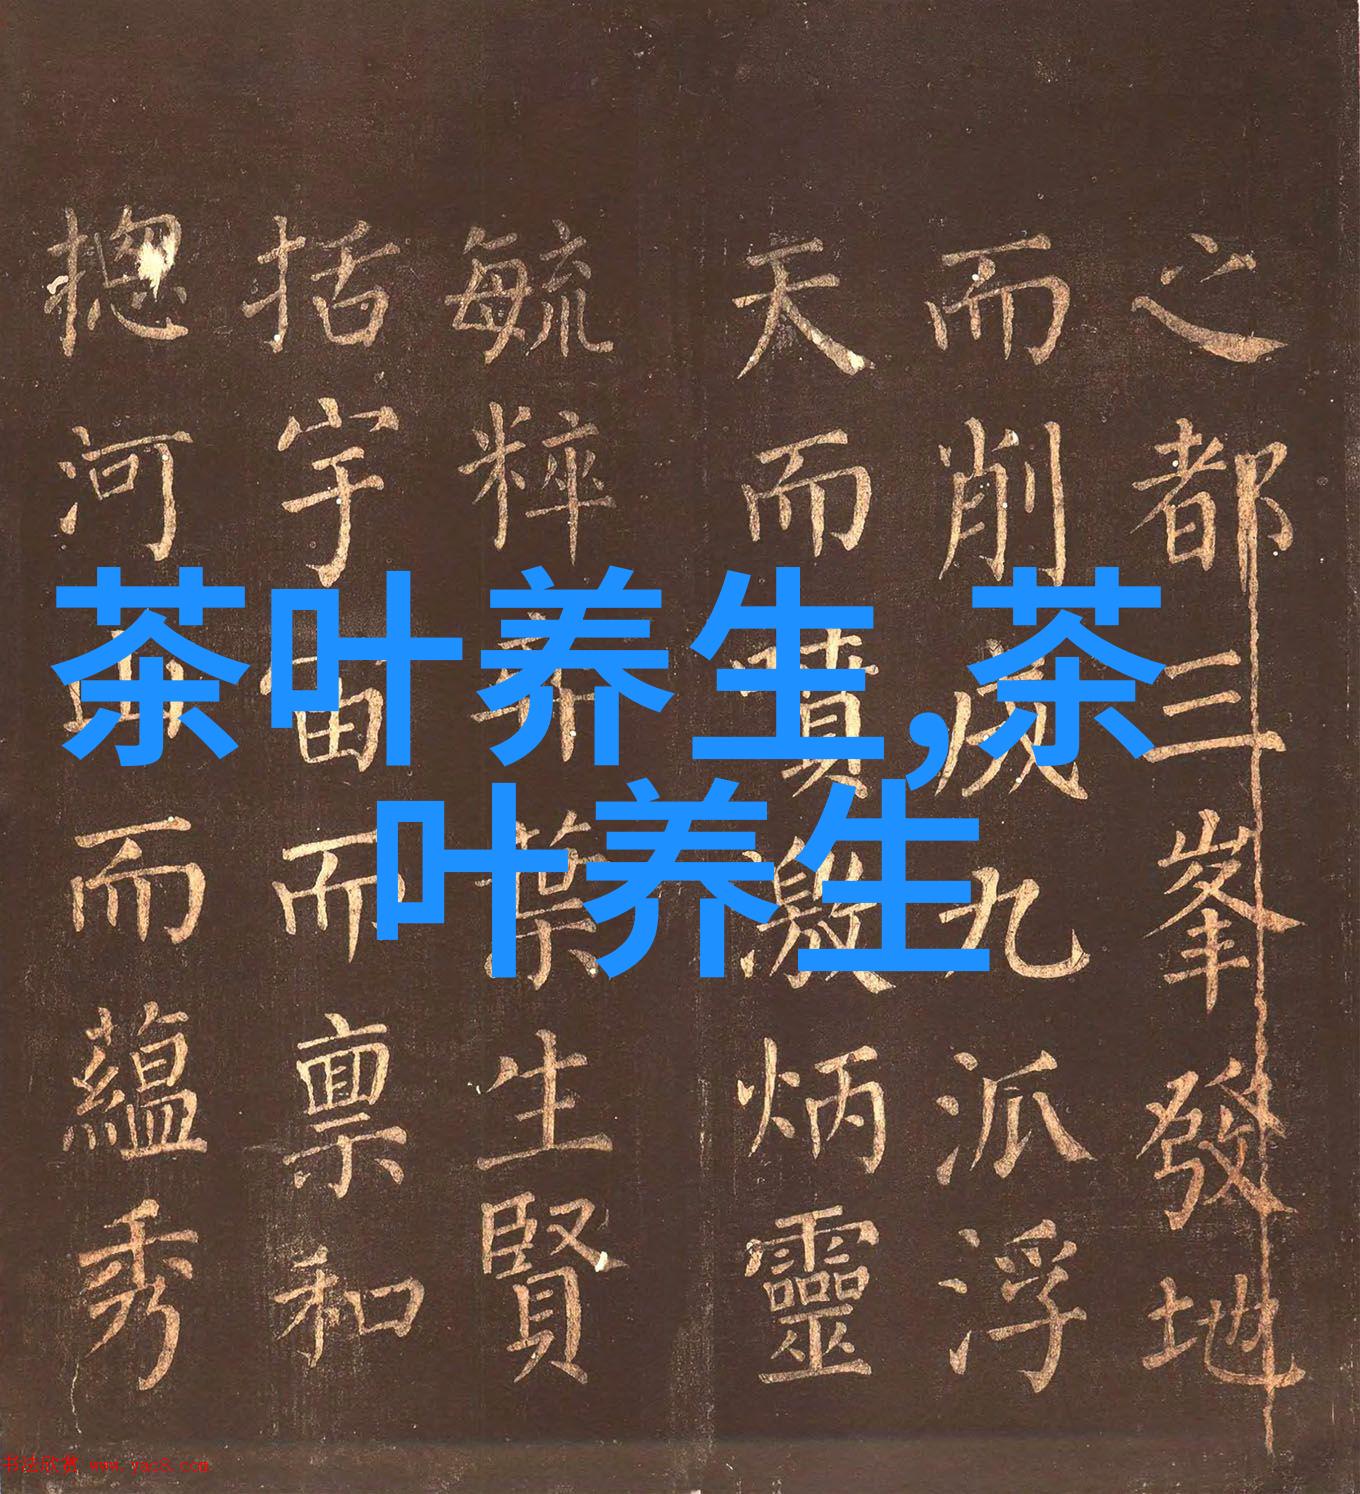 茶叶养生,茶
叶养生
之都三峯發地
而削成九派浮
天而噴激炳靈
毓粹葉生賢
括宇宙而稟和
揔河山而蘊秀
书法欣赏 www.yac8.com